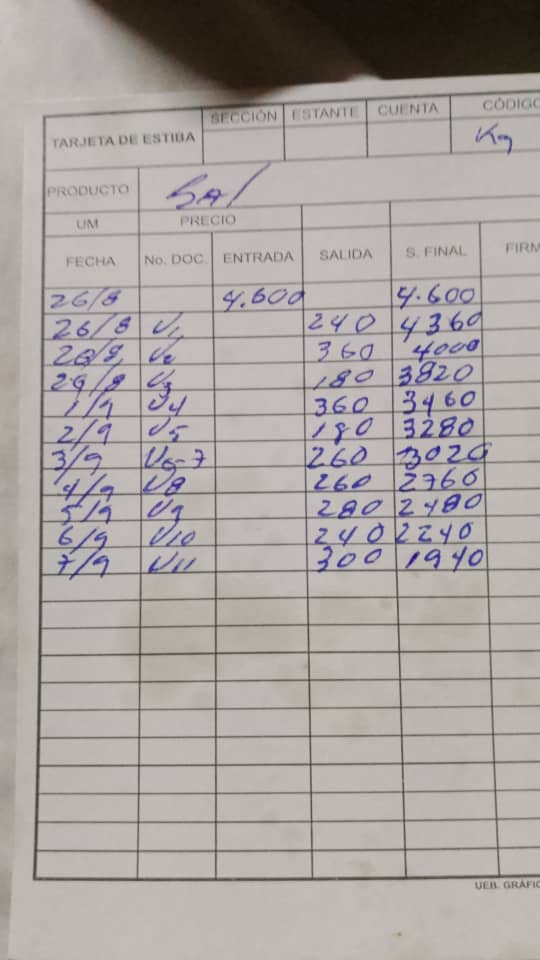 SECCIÓN ESTANTE CUENTA CÓDIGO
TARJETA DE ESTIBA Kg
PRODUCTO Sal
UM PRECIO
FECHA No. DOC. ENTRADA SALIDA S. FINAL FIRM
26/8 4.600 4.600
26/8 V1 240 4360
28/8 V2 360 4000
29/8 V3 180 3820
1/9 V4 360 3460
2/9 V5 180 3280
3/9 V6-7 260 3020
4/9 V8 260 2760
5/9 V9 280 2480
6/9 V10 240 2240
7/9 V11 300 1940
UEB. GRÁFIC